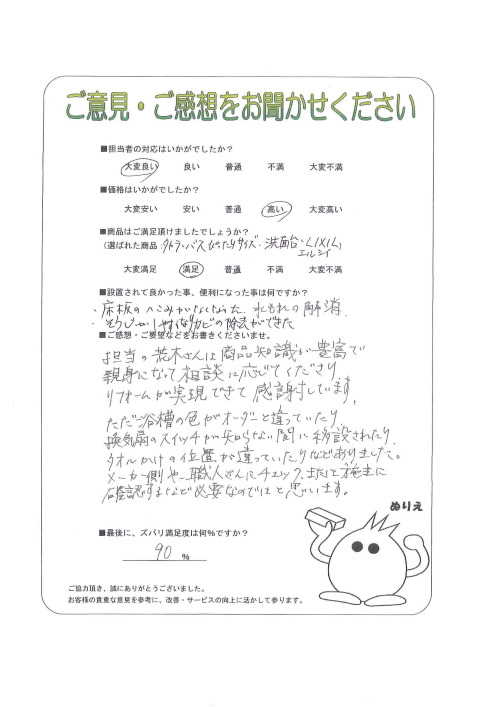 ご意見・ご感想をお聞かせください
■担当者の対応はいかがでしたか？
大変良い 良い 普通 不満 大変不満
■価格はいかがでしたか？
大変安い 安い 普通 高い 大変高い
■商品はご満足頂けましたでしょうか？
(選ばれた商品: タカラ・バスぴったりサイズ・洗面台・LIXIL)
エルシィ
大変満足 満足 普通 不満 大変不満
■設置されて良かった事、便利になった事は何ですか？
・床板のへこみがなくなった、水もれの解消、
・そうじがしやすくなりカビの除去ができた
■ご感想・ご要望などをお書きくださいませ。
担当の荒木さんは商品知識が豊富で
親身になって相談に応じてくださり、
リフォームが実現できて感謝しています。
ただ浴槽の色がオーダーと違っていたり
換気扇のスイッチが知らない間に移設されたり、
タオルかけの位置が違っていたりなどありました。
メーカー側や職人さんにチェック、また施主に
確認するなど必要なのではと思います。
ぬりえ
■最後に、ズバリ満足度は何％ですか？
90 %
ご協力頂き、誠にありがとうございました。
お客様の貴重な意見を参考に、改善・サービスの向上に活かして参ります。